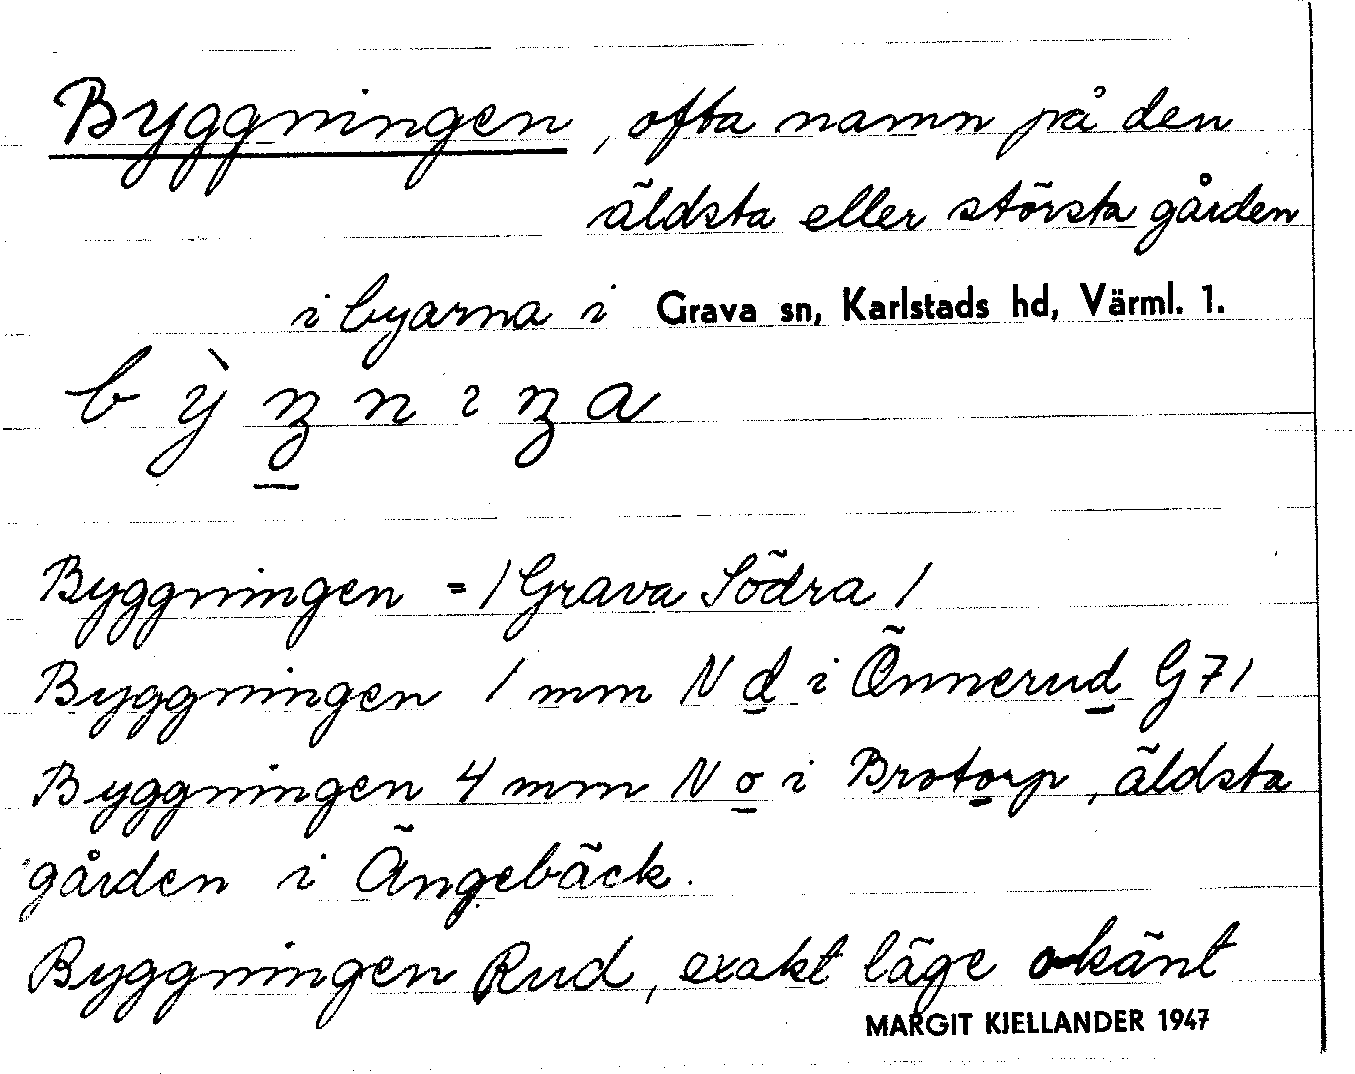 Byggningen, ofta namn på den
äldsta eller största gården
i byarna i Grava sn, Karlstads hd, Värml. 1.
Byggningen = / Grava Södra /
Byggningen 1 mm N d i Önnerud G71
Byggningen 4 mm N o i Brotorp, äldsta
gården i Ängebäck.
Byggningen Rud, exakt läge okänt
MARGIT KJELLANDER 1947